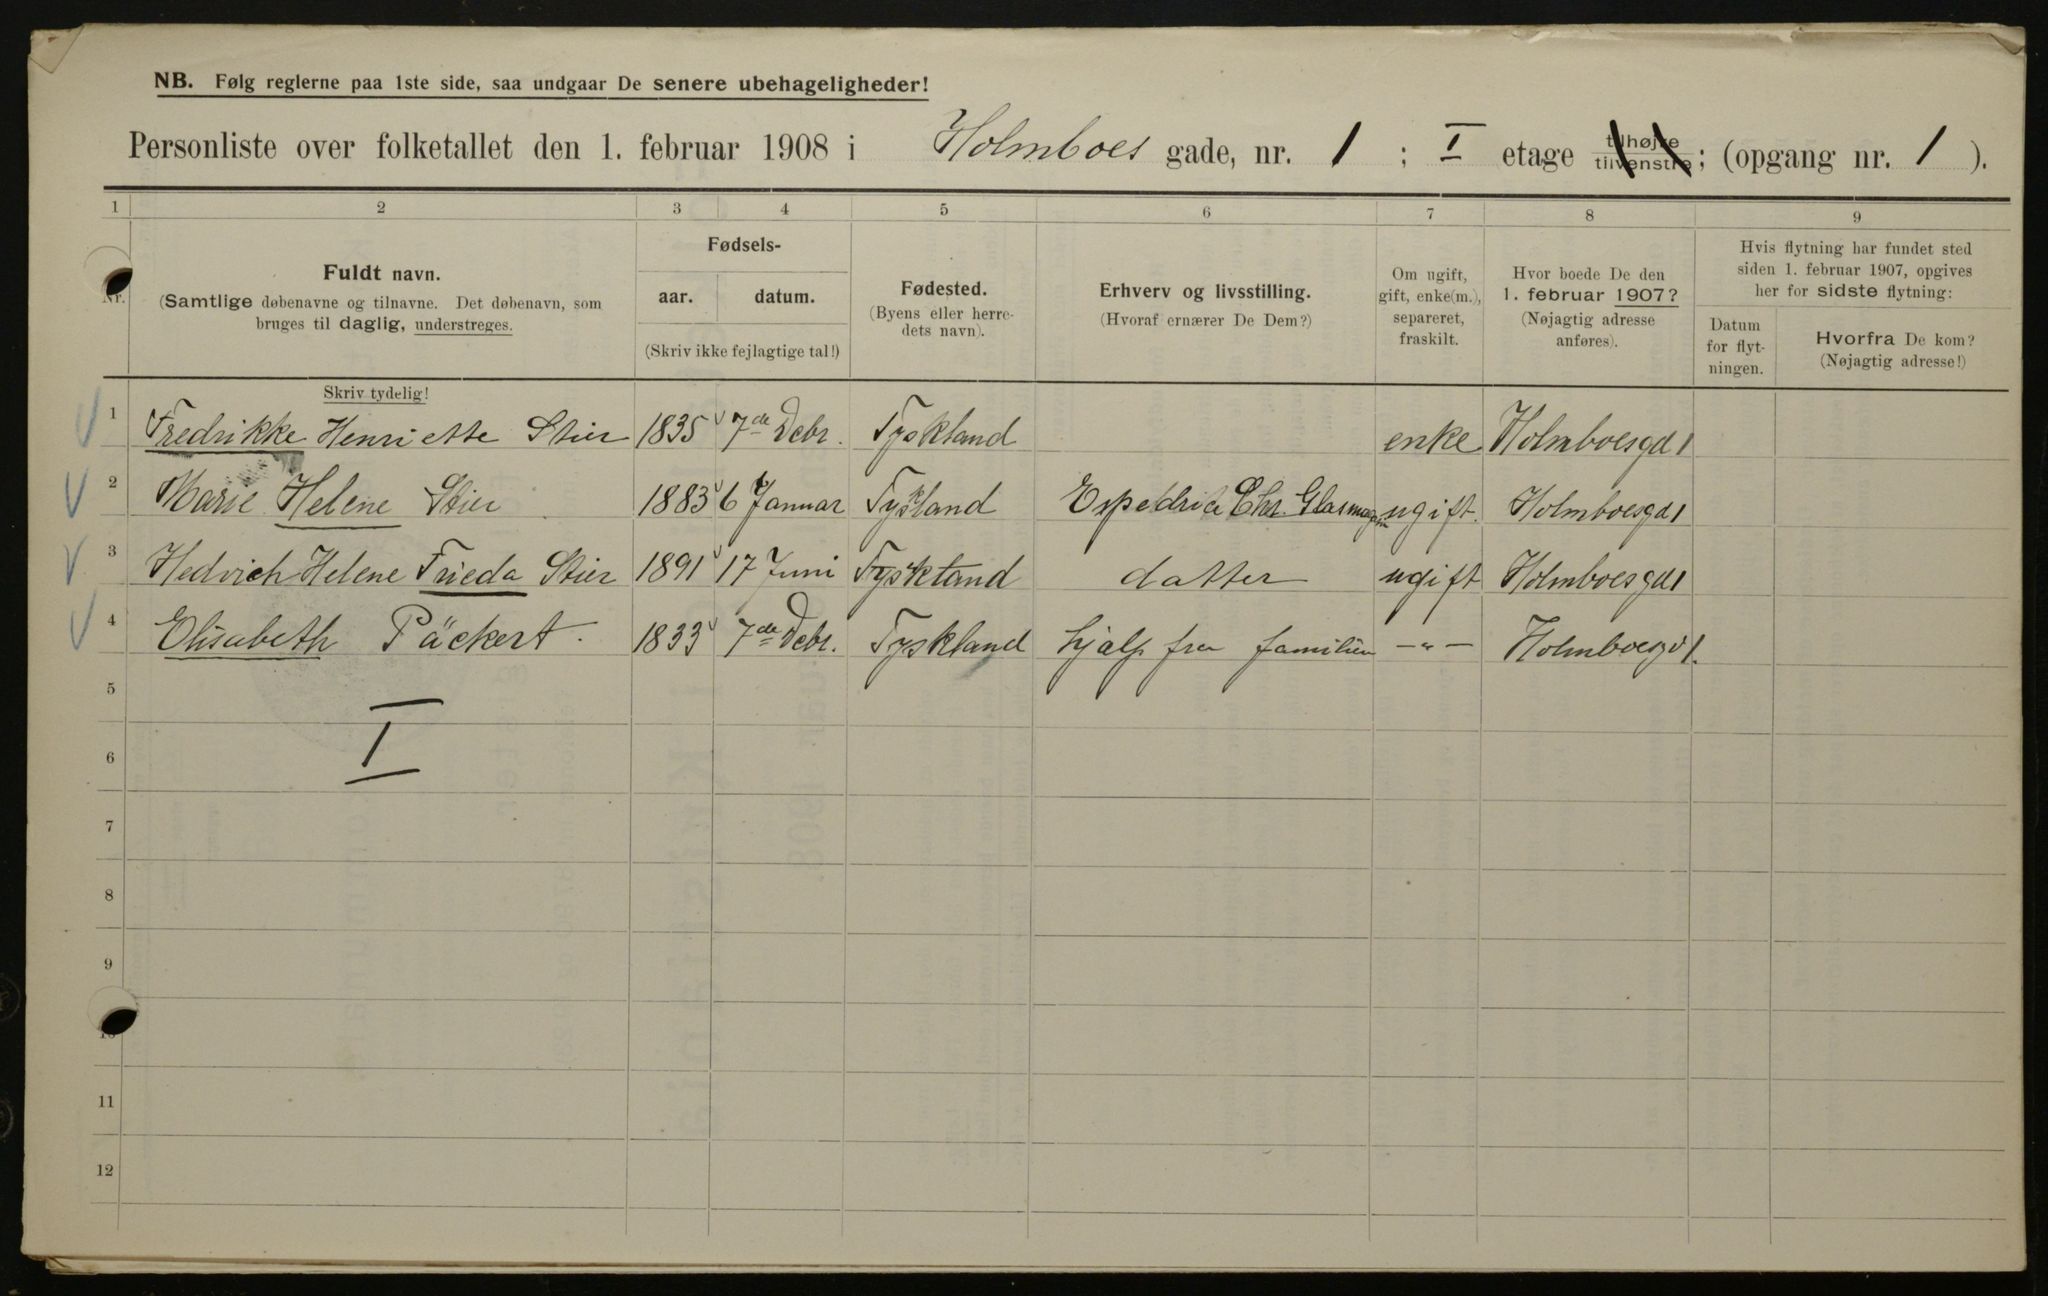 NB. Følg reglerne paa 1ste side, saa undgaar De senere ubehageligheder!
Personliste over folketallet den 1. februar 1908 i Holmboes gade, nr. 1 ; I etage tilhøjre tilvenstre ; (opgang nr. 1 ).
1 2 3 4 5 6 7 8 9
Nr.
Fuldt navn.
(Samtlige døbenavne og tilnavne. Det døbenavn, som
bruges til daglig, understreges.
Skriv tydelig!
Fødsels-
aar. datum.
(Skriv ikke fejlagtige tal!)
Fødested.
(Byens eller herre-
dets navn).
Erhverv og livsstilling.
(Hvoraf ernærer De Dem?)
Om ugift,
gift, enke(m.),
separeret,
fraskilt.
Hvor boede De den
1. februar 1907?
(Nøjagtig adresse
anføres).
Hvis flytning har fundet sted
siden 1. februar 1907, opgives
her for sidste flytning:
Datum
for flyt-
ningen.
Hvorfra De kom?
(Nøjagtig adresse!)
1 Fredrikke Henriette Stier 1835 7de Debr. Tyskland enke Holmboesgd 1
2 Marie Helene Stier 1883 6 Januar Tyskland Chr. Glasmagasin ugift. Holmboesgd 1
3 Hedvich Helene Frieda Stier 1891 17 Juni Tyskland datter ugift Holmboesgd 1
4 Elisabeth Päckert. 1833 7de Debr. Tyskland hjælp fra familien —„— Holmboesgd 1.
5
I
6
7
8
9
10
11
12